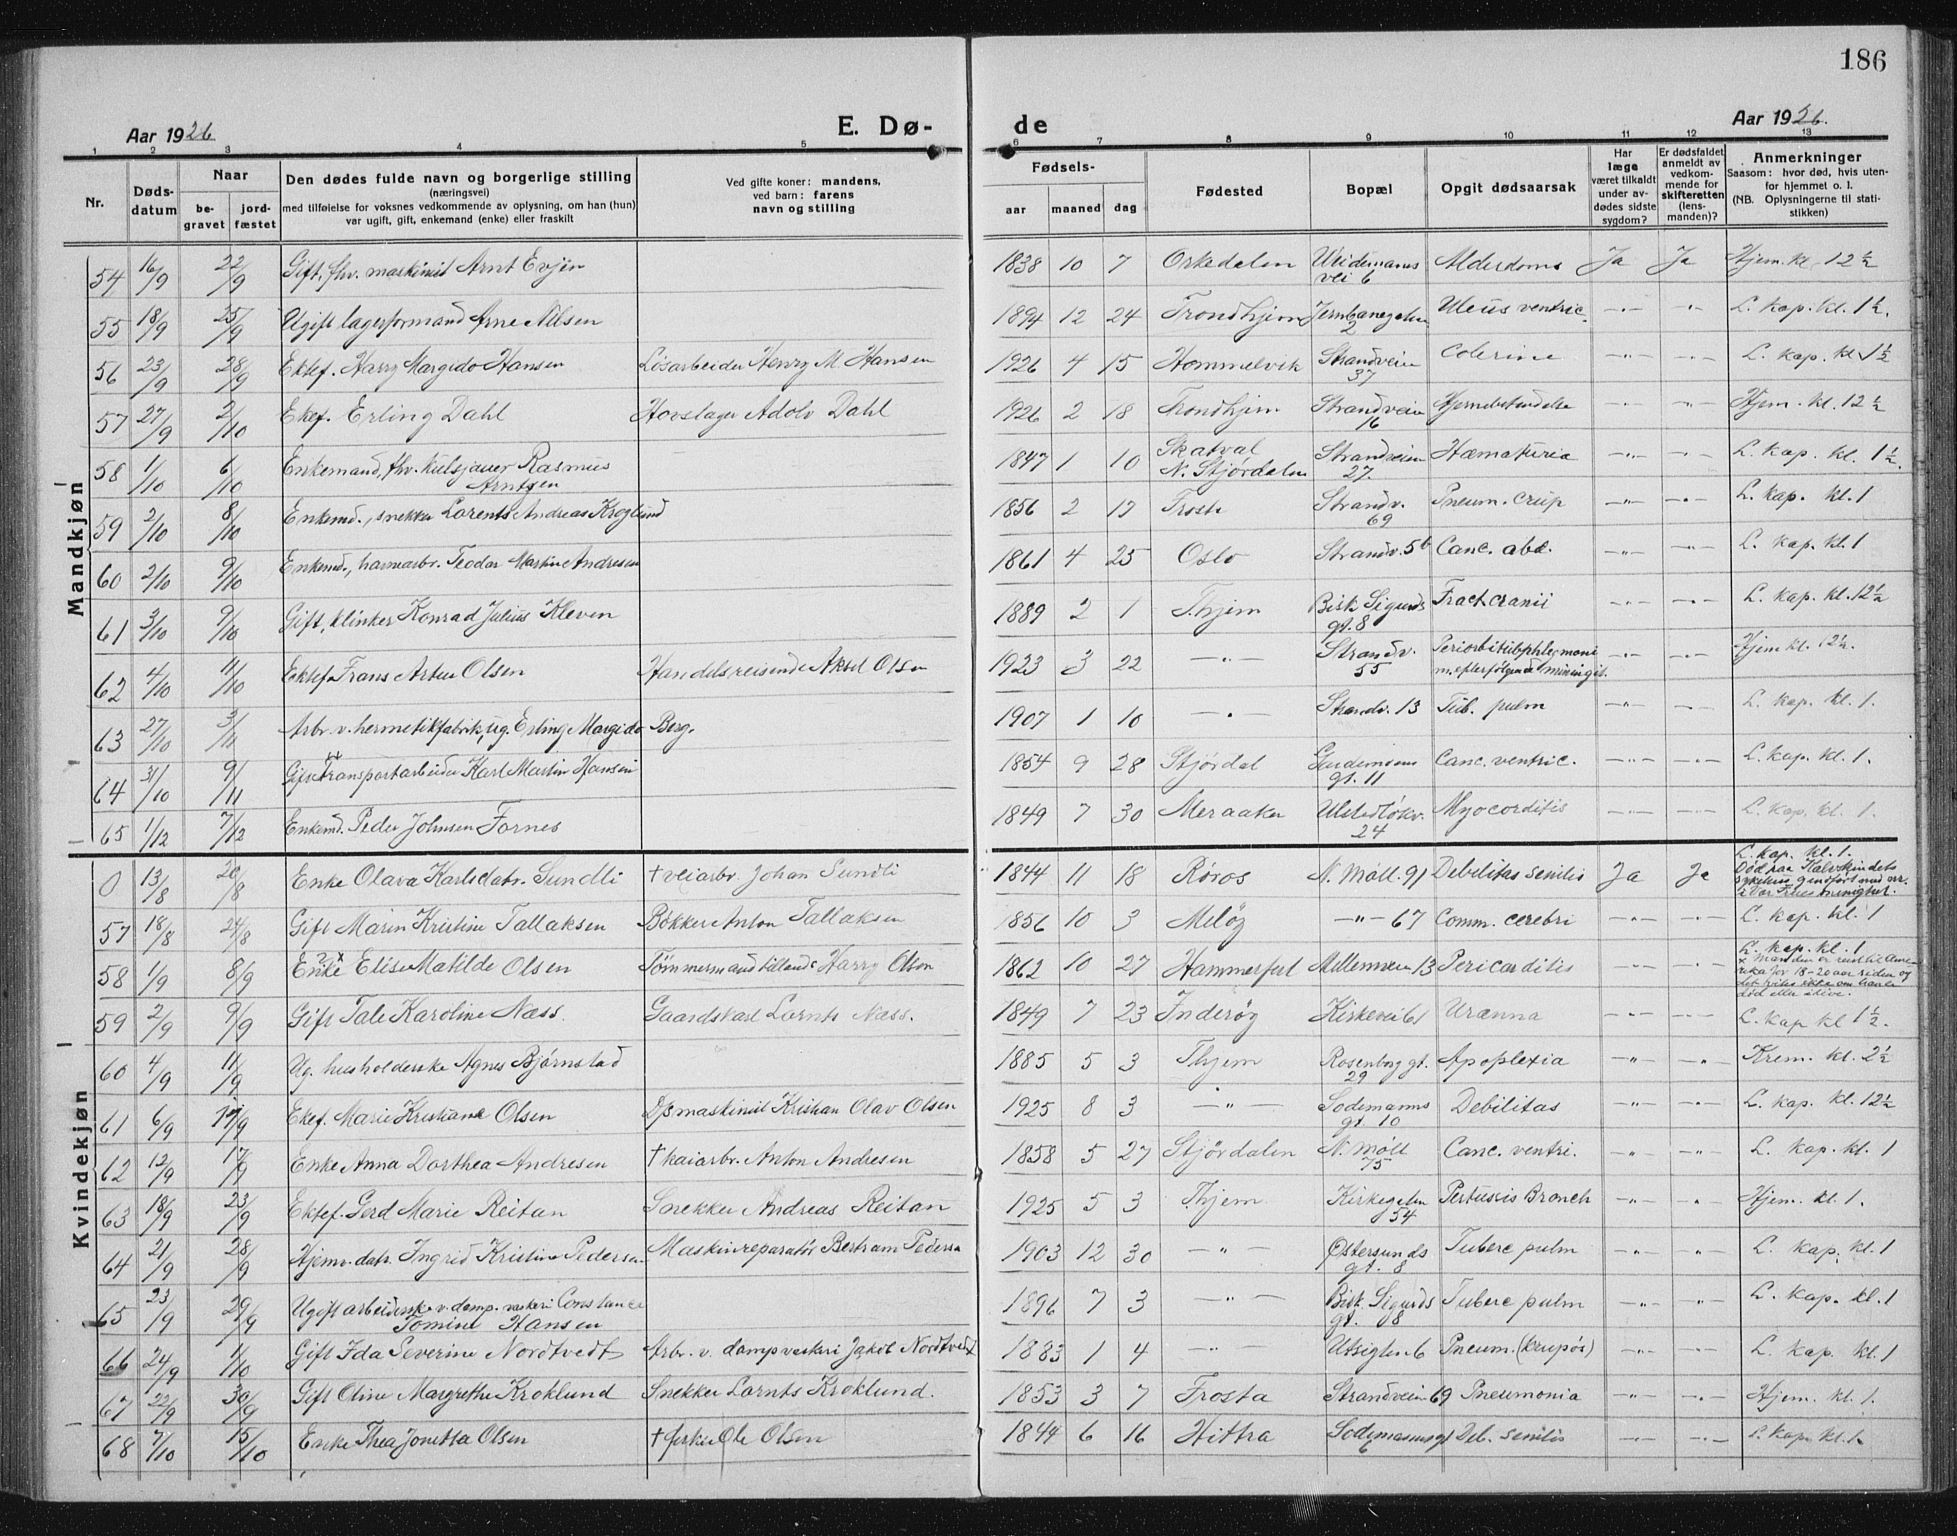 186
Aar 1926
E. Dø-
de
Aar 1926.
1 2 3 4 5 6 7 8 9 10 11 12 13
Nr.
Døds-
datum
Naar
be-
gravet
jord-
fæstet
Den dødes fulde navn og borgerlige stilling
(næringsvei)
med tilføielse for voksnes vedkommende av oplysning, om han (hun)
var ugift, gift, enkemand (enke) eller fraskilt
Ved gifte koner: mandens,
ved barn: farens
navn og stilling
Fødsels-
aar maaned dag
Fødested
Bopæl
Opgit dødsaarsak
Har
læge
været tilkaldt
under av-
dødes sidste
sygdom?
Er dødsfaldet
anmeldt av
vedkom-
mende for
skifteretten
(lens-
manden)?
Anmerkninger
Saasom: hvor død, hvis uten-
for hjemmet o. l.
(NB. Oplysningerne til stati-
stikken)
Mandkjøn
54 16/9 22/9 Gift, fhv. maskinist Arnt Evjen 1838 10 7 Orkedalen Weidemanns vei 6 Alderdoms Ja Ja Hjem. kl. 12 1/2
55 18/9 25/9 Ugift lagerformand Arne Nilsen 1894 12 24 Trondhjem Jernbanegaten 2 Ulcus ventric. —"— —"— L. kap. kl. 1 1/2.
56 23/9 28/9 Ektef. Harry Margido Hansen Løsarbeider Henry M Hansen 1926 4 15 Hommelvik Strandveien 37 Colerine —"— —"— L. kap. kl. 1 1/2
57 27/9 2/10 Ekef. Erling Dahl Hovslager Adolv Dahl 1926 2 18 Trondhjem Strandveien 16 Hjernebetendelse —"— —"— Hjem. kl. 12 1/2
58 1/10 6/10 Enkemand, fhv. kulsjauer Rasmus Arntsen 1847 1 10 Skatval N. Stjørdalen Strandveien 27. Hæmaturia —"— —"— L. kap. kl. 1 1/2.
59 2/10 8/10 Enkemd., snekker Lorents Andreas Kroglund 1856 2 17 Frosta Strandv. 69 Pneum. crup —"— —"— L. kap. kl. 1
60 2/10 9/10 Enkemd., havnearbr. Teodor Martin Andresen 1861 4 25 Oslo Strandv. 5b Canc. abd. —"— —"— L. kap. kl. 1
61 3/10 9/10 Gift, klinker Konrad Julius Kleven 1889 2 1 T.hjem Bisk. Sigurds gt. 8 Fract cranii —"— —"— L. kap. kl. 12 1/2
62 4/10 11/10 Ektef. Frans Artur Olsen Handelsreisende Aksel Olsen 1923 3 22 —"— Strandv. 55 m. efterfølgende —"— —"— Hjem kl. 12 1/2.
63 27/10 3/11 Arbr. v. hermetikfabrik, ug. Erling Margido Berg. 1907 1 10 —"— Strandv. 13 Tub. pulm —"— —"— L. kap. kl. 1.
64 31/10 9/11 Gift Transportarbeider Karl Martin Hansen 1854 9 28 Stjørdal gt. 11 Canc. ventric. —"— —"— L. kap. kl. 1.
65 1/12 7/12 Enkemd. Peder Johnsen Fornes 1849 7 30 Meraaker 24 Myocorditis —"— —"— L. kap. kl. 1.
Kvindekjøn
0 13/8 20/8 Enke Olava Karlsdatr. Sundli † veiarbr. Johan Sundli 1844 11 18 Røros N. Møll. 91 Debilitas senilis Ja Ja L. kap. kl. 1. Død paa Kalvskindets
57 18/8 24/8 Gift Marin Kristine Tallaksen Bøkker Anton Tallaksen 1856 10 3 Meløy —"— 67 Comm. cerebri —"— —"— L. kap. kl. 1
58 1/9 8/9 Enke Elise Matilde Olsen Tømmermand Harry Olson 1862 10 27 Hammerfest Mellemveien 13 Pericarditis —"— —"— L. kap. kl. 1 × Manden er reist til Amerika for 18-20 aar siden og det vites ikke om han er død eller ilive.
59 2/9 9/9 Gift Tale Karoline Næss. Gaardskarl Lornts Næss. 1849 7 23 Inderøy Kirkevei 61 Uræmia —"— —"— L. kap kl 1 1/2.
60 4/9 11/9 Ug. husholderske Agnes Bjørnstad 1885 5 3 Thjem Rosenborg gt. 29 Apoplexia —"— —"— Krem. kl. 2 1/2
61 6/9 14/9 Ekef. Marie Kristiane Olsen D/s maskinist Kristian Olav Olsen 1925 8 3 —"— Sodemanns gt. 10 Debilitas —"— —"— L. kap. kl. 12 1/2
62 12/9 17/9 Enke Anna Dorthea Andresen † kaiarbr. Anton Andresen 1858 5 27 Stjørdalen N. Møll 75 Canc. ventri. —"— —"— L. kap. kl. 1
63 18/9 23/9 Ektef. Gerd Marie Reitan Snekker Andreas Reitan 1925 5 3 T.hjem Kirkegaten 54 Pertussis Bronch —"— —"— Hjem. kl. 1.
64 21/9 28/9 Hjemv. datr. Ingrid Kristine Pedersen Maskinreparatør Bertram Pedersen 1903 12 30 —"— Østersunds gt. 8 Tuberc pulm —"— —"— L. kap. kl. 1
65 23/9 29/9 Ugift arbeiderske v. damp. vaskeri Constance Tomine Hansen 1896 7 3 —"— Bisk. Sigurds gt. 8 Tuberc pulm —"— —"— L. kap. kl. 1
66 24/9 1/10 Gift Ida Severine Nordtvedt Arbr. v. dampvaskeri Jakob Nordtvedt 1883 1 4 —"— Utsigten 6 Pneum. (krupøs) —"— —"— L. kap. kl. 1
67 22/9 30/9 Gift Oline Margrethe Kroklund Snekker Lornts Kroklund. 1853 3 7 Frosta Strandveien 69 Pneumonia —"— —"— Hjem. kl. 1.
68 7/10 15/10 Enke Thea Jonetta Olsen † fisker Ole Olsen 1844 6 16 Hittra Sodemannsgt 6 Deb. senilis —"— —"— L. kap. kl. 1.